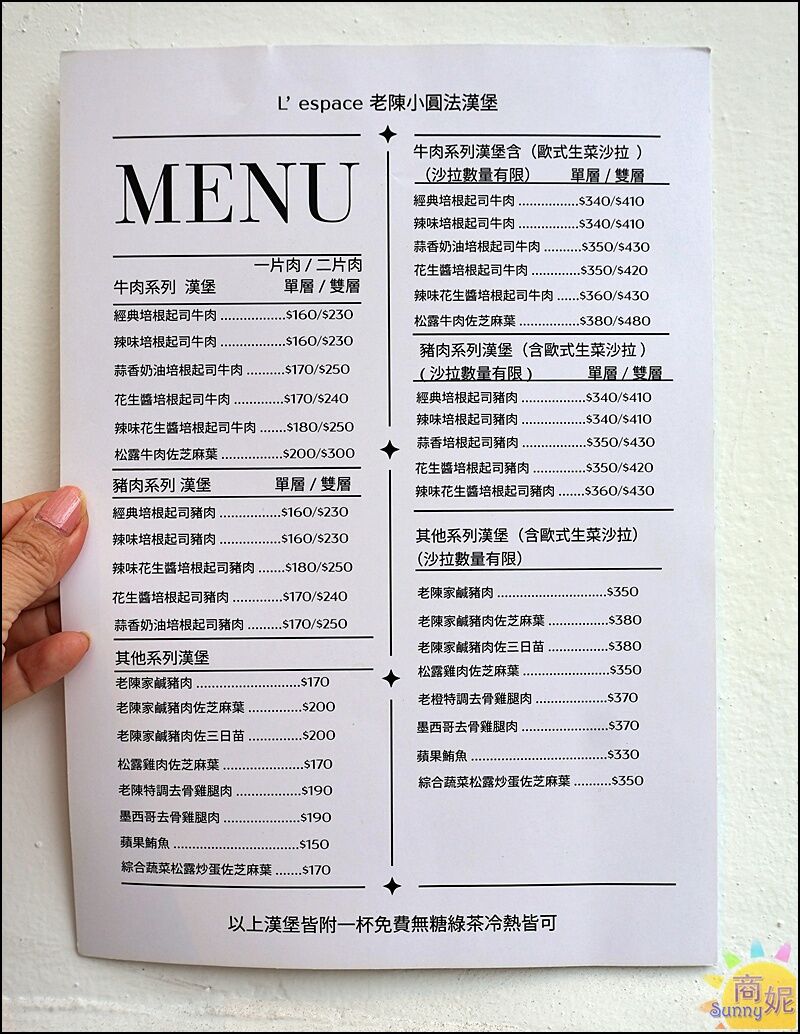 L' espace 老陳小圓法漢堡
MENU
一片肉 / 二片肉
牛肉系列 漢堡 單層 / 雙層
經典培根起司牛肉 ................$160/$230
辣味培根起司牛肉 ................$160/$230
蒜香奶油培根起司牛肉 ..........$170/$250
花生醬培根起司牛肉 ............$170/$240
辣味花生醬培根起司牛肉 .......$180/$250
松露牛肉佐芝麻葉 ...............$200/$300
豬肉系列 漢堡 單層 / 雙層
經典培根起司豬肉 ...............$160/$230
辣味培根起司豬肉 ...............$160/$230
辣味花生醬培根起司豬肉 .......$180/$250
花生醬培根起司豬肉 ............$170/$240
蒜香奶油培根起司豬肉 ..........$170/$250
其他系列漢堡
老陳家鹹豬肉 .........................$170
老陳家鹹豬肉佐芝麻葉 ..............$200
老陳家鹹豬肉佐三日苗 ..............$200
松露雞肉佐芝麻葉 ...................$170
老陳特調去骨雞腿肉 .................$190
墨西哥去骨雞腿肉 ....................$190
蘋果鮪魚 ................................$150
綜合蔬菜松露炒蛋佐芝麻葉 .......$170
牛肉系列漢堡含（歐式生菜沙拉 ）
（沙拉數量有限） 單層 / 雙層
經典培根起司牛肉 ................$340/$410
辣味培根起司牛肉 ................$340/$410
蒜香奶油培根起司牛肉 ..........$350/$430
花生醬培根起司牛肉 .............$350/$420
辣味花生醬培根起司牛肉 ......$360/$430
松露牛肉佐芝麻葉 ................$380/$480
豬肉系列漢堡（含歐式生菜沙拉 ）
( 沙拉數量有限 ) 單層 / 雙層
經典培根起司豬肉 .................$340/$410
辣味培根起司豬肉 .................$340/$410
蒜香培根起司豬肉 .................$350/$430
花生醬培根起司豬肉 .............$350/$420
辣味花生醬培根起司豬肉 .......$360/$430
其他系列漢堡（含歐式生菜沙拉）
（沙拉數量有限）
老陳家鹹豬肉 ..........................$350
老陳家鹹豬肉佐芝麻葉 ...............$380
老陳家鹹豬肉佐三日苗 ...............$380
松露雞肉佐芝麻葉 ....................$350
老橙特調去骨雞腿肉 .................$370
墨西哥去骨雞腿肉 ....................$370
蘋果鮪魚 ................................$330
綜合蔬菜松露炒蛋佐芝麻葉 ..........$350
以上漢堡皆附一杯免費無糖綠茶冷熱皆可
商妮
Sunny